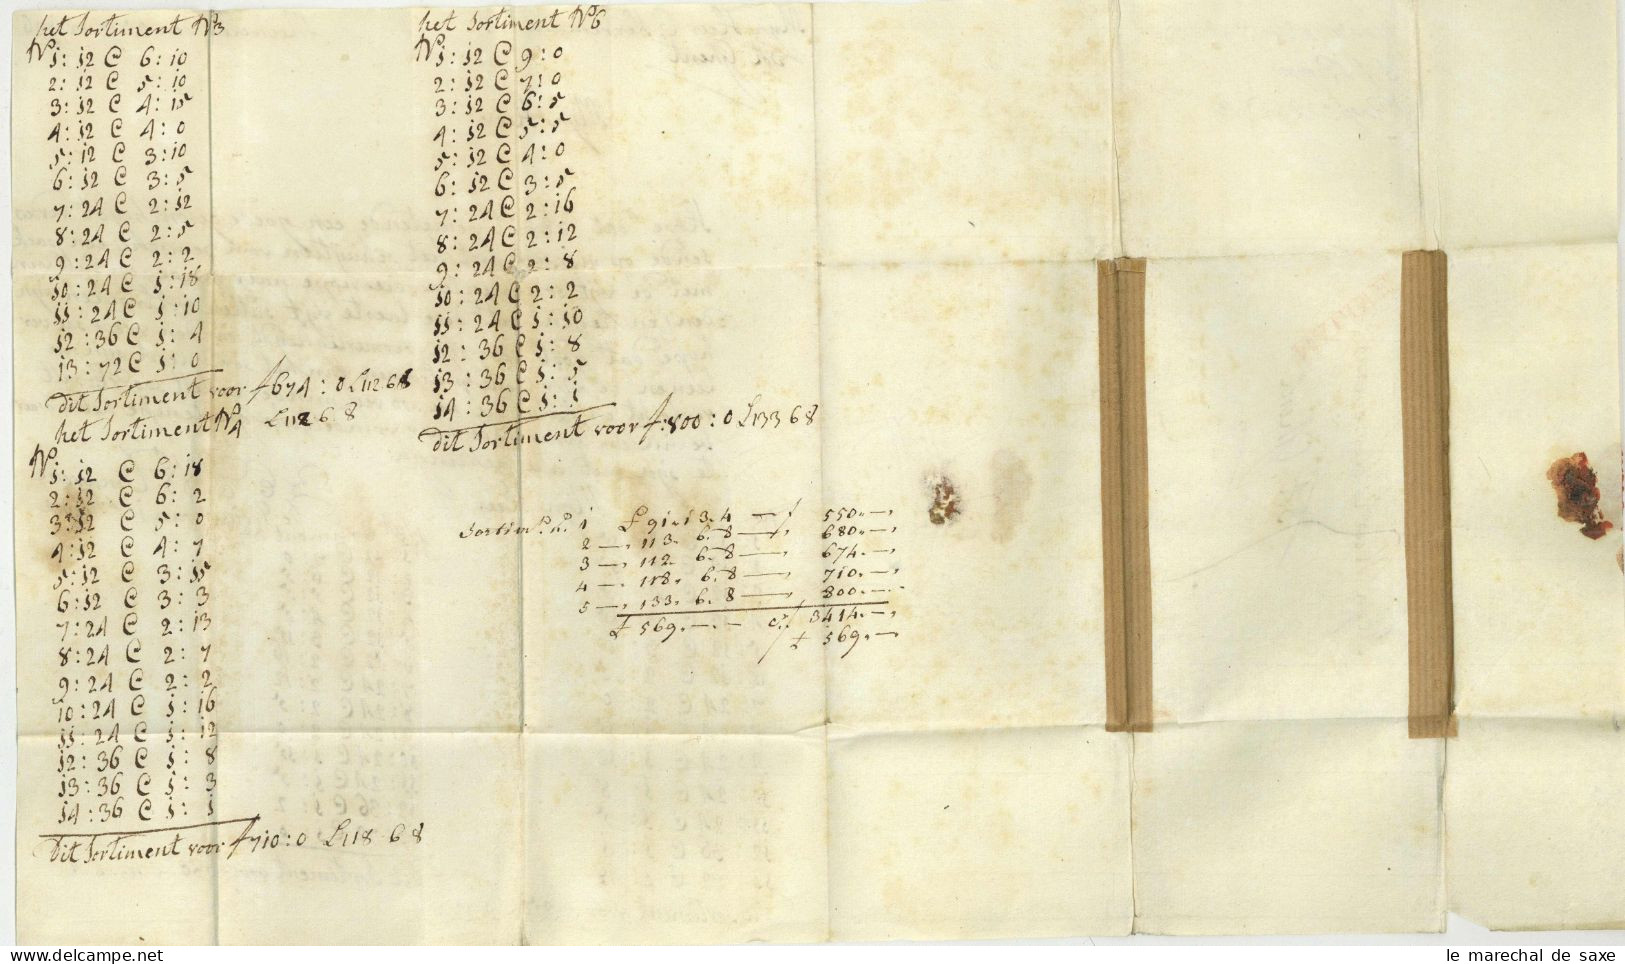 het Sortiment No 3
No 1: 12 @ 6: 10
2: 12 @ 5: 10
3: 12 @ 4: 15
4: 12 @ 4: 0
5: 12 @ 3: 10
6: 12 @ 3: 5
7: 24 @ 2: 12
8: 24 @ 2: 5
9: 24 @ 2: 2
10: 24 @ 1: 18
11: 24 @ 1: 10
12: 36 @ 1: 4
13: 72 @ 1: 0
dit Sortiment voor f 674: 0 £ 112 6 8
het Sortiment No 4 £ 112 6 8
No 1: 12 @ 6: 18
2: 12 @ 6: 2
3: 12 @ 5: 0
4: 12 @ 4: 7
5: 12 @ 3: 15
6: 12 @ 3: 3
7: 24 @ 2: 13
8: 24 @ 2: 7
9: 24 @ 2: 2
10: 24 @ 1: 16
11: 24 @ 1: 12
12: 36 @ 1: 8
13: 36 @ 1: 3
14: 36 @ 1: 1
Dit Sortiment voor f 710: 0 £ 118 6 8
het Sortiment No 6
No 1: 12 @ 9: 0
2: 12 @ 7: 0
3: 12 @ 6: 5
4: 12 @ 5: 5
5: 12 @ 4: 0
6: 12 @ 3: 5
7: 24 @ 2: 16
8: 24 @ 2: 12
9: 24 @ 2: 8
10: 24 @ 2: 2
11: 24 @ 1: 10
12: 36 @ 1: 8
13: 36 @ 1: 5
14: 36 @ 1: 1
dit Sortiment voor f: 800: 0 £ 133 6 8
Sortimt. No. 1 £ 91. 13. 4 — f 550. —
2 — 113. 6. 8 — 680. —
3 — 112. 6. 8 — 674. —
4 — 118. 6. 8 — 710. —
5 — 133. 6. 8 — 800. —
£ 569. — . — f 3414. —
£ 569. —
le marechal de saxe